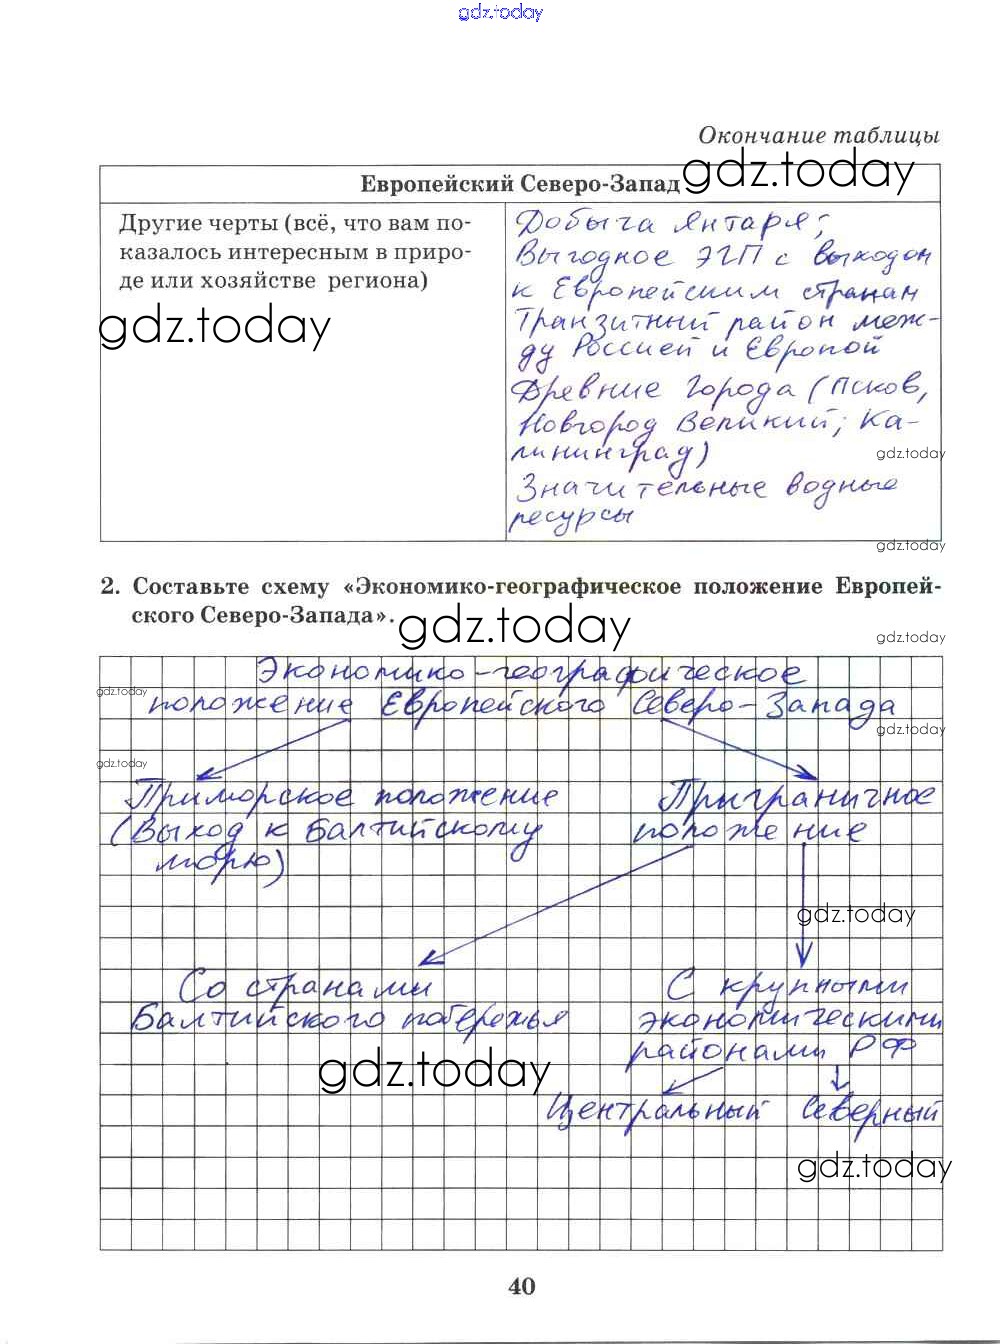 gdz.today
Окончание таблицы
Европейский Северо-Запад gdz.today
Другие черты (всё, что вам по-
казалось интересным в приро-
де или хозяйстве региона)
gdz.today
Добыча янтаря;
Выгодное ЭГП с выходом
к Европейским странам
Транзитный район меж-
ду Россией и Европой
Древние города (Псков,
Новгород Великий; Ка-
лининград)
gdz.today
Значительные водные
ресурсы
gdz.today
2. Составьте схему «Экономико-географическое положение Европей-
ского Северо-Запада».
gdz.today
gdz.today
Экономико-географическое
gdz.today
положение Европейского Северо-Запада
gdz.today
gdz.today
Приморское положение
(Выход к Балтийскому
морю)
Приграничное
положение
gdz.today
Со странами
Балтийского побережья
С крупными
экономическими
районами РФ
gdz.today
Центральный Северный
gdz.today
40